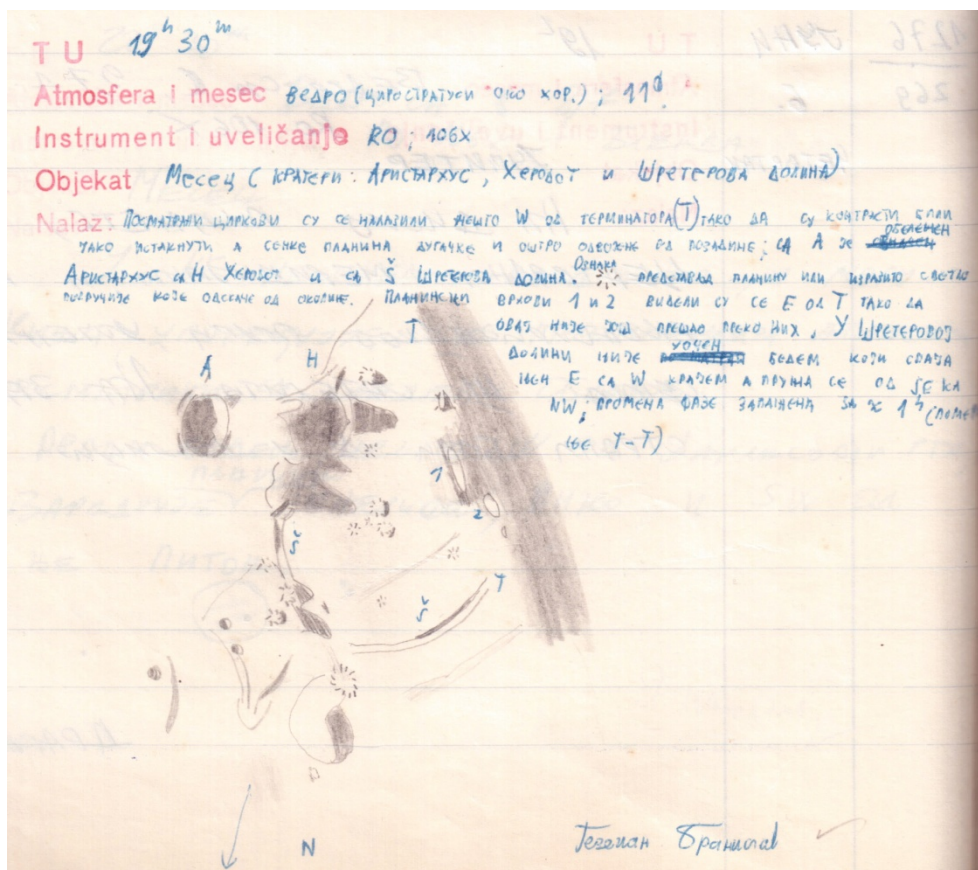 TU 19h 30m
Atmosfera i mesec ВЕДРО (ЦИРОСТРАТУСИ ОКО ХОР.) ; 11d
Instrument i uveličanje RO, 106x
Objekat МЕСЕЦ (КРАТЕРИ: АРИСТАРХУС, ХЕРОДОТ И ШРЕТЕРОВА ДОЛИНА)
Nalaz: ПОСМАТРАНИ ЦИРКОВИ СУ СЕ НАЛАЗИЛИ НЕШТО W ОД ТЕРМИНАТОРА (T) ТАКО ДА СУ КОНТРАСТИ БИЛИ
ТАКО ИСТАКНУТИ А СЕНКЕ ПЛАНИНА ДУГАЧКЕ И ОШТРО ОДВОЈЕНЕ ОД ПОЗАДИНЕ; СА A ЈЕ ОБЕЛЕЖЕН
АРИСТАРХУС СА H ХЕРОДОТ И СА Š ШРЕТЕРОВА ДОЛИНА. ОЗНАКА ПРЕДСТАВЉА ПЛАНИНУ ИЛИ ИЗРАЗИТО СВЕТЛО
ПОДРУЧЈЕ КОЈЕ ОДСКАЧЕ ОД ОКОЛИНЕ. ПЛАНИНСКИ ВРХОВИ 1 И 2 ВИДЕЛИ СУ СЕ E ОД T ТАКО ДА
ОВАЈ НИЈЕ ЈОШ ПРЕШАО ПРЕКО ЊИХ. У ШРЕТЕРОВОЈ
ДОЛИНИ НИЈЕ УОЧЕН БЕДЕМ КОЈИ СПАЈА
ЊЕН E СА W КРАЈЕМ А ПРУЖА СЕ ОД SE КА
NW; ПРОМЕНА ФАЗЕ ЗАПАЖЕНА ЗА 1h (ПОМЕ
ЊЕ T-T)
A
H
T
1
2
Š
T
Š
N
Бранислав